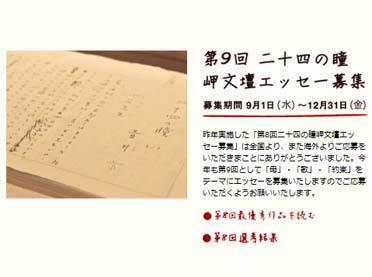 第9回 二十四の瞳
岬文壇エッセー募集
募集期間 9月1日（水）～12月31日（金）
昨年実施した「第8回二十四の瞳岬文壇エッ
セー募集」は全国より、また海外よりご応募を
いただきまことにありがとうございました。今
年も第9回として「母」・「歌」・「約束」を
テーマにエッセーを募集いたしますのでご応募
いただくようお願いいたします。
●第8回最優秀作品を読む
●第8回選考結果